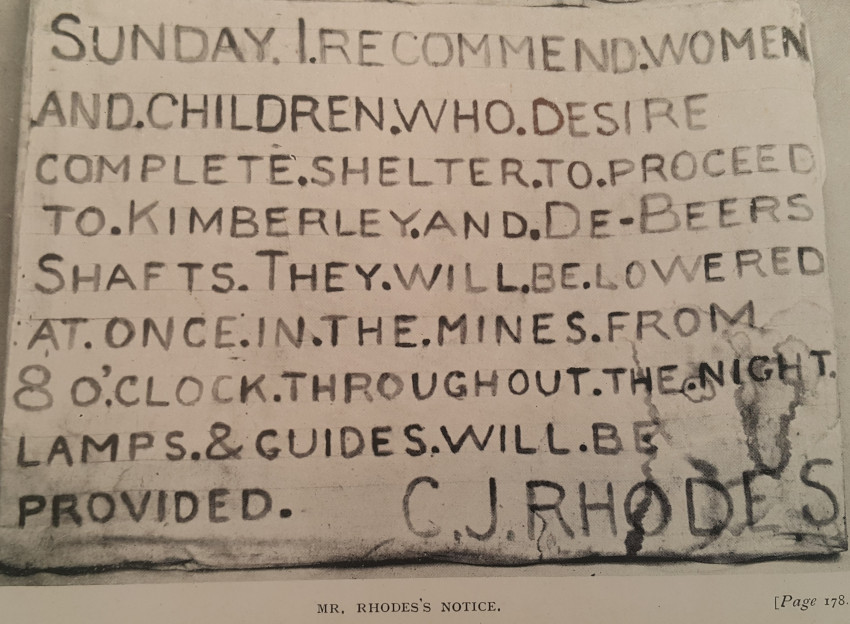 SUNDAY. I.RECOMMEND.WOMEN
AND.CHILDREN.WHO.DESIRE
COMPLETE.SHELTER.TO.PROCEED
TO.KIMBERLEY.AND.DE-BEERS
SHAFTS.THEY.WILL.BE.LOWERED
AT.ONCE.IN.THE.MINES.FROM
8 O'CLOCK.THROUGHOUT.THE.NIGHT.
LAMPS.& GUIDES.WILL.BE
PROVIDED. C.J.RHODES
MR. RHODES'S NOTICE. [Page 178.